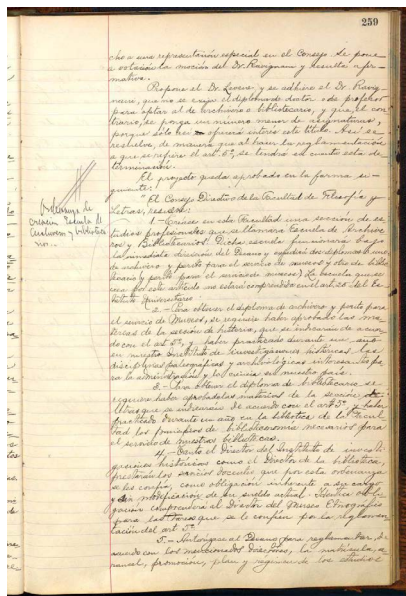 259
cho a una representación especial en el Consejo. Se pone
a votación la moción del Dr. Ravignani y resulta afir-
mativa.
Propone el Dr. y se adhiere el Dr. Ravig-
nani, que no se exija el diploma de doctor o de profesor
para optar al de archivero o bibliotecario, y que, al con-
trario, se ponga un número menor de asignaturas,
porque sólo así ofrecerá interés este título. Así se
resuelve, de manera que al hacer la reglamentación
a que se refiere el art. 5º, se tendrá en cuenta esta de-
terminación.
El proyecto queda aprobado en la forma si-
guiente:
"El Consejo Directivo de la Facultad de Filosofía y
Letras, resuelve:
Ordenanza de
creación Escuela de
Archiveros y bibliotecarios
1.- Créase en esta Facultad una sección de es-
tudios profesionales que se llamará Escuela de Archive-
ros y Bibliotecarios. Dicha escuela funcionará bajo
la inmediata dirección del Decano y expedirá dos diplomas: uno
de archivero y perito para el servicio de museos y otro de biblio-
tecario y perito para el servicio de museos) La escuela que se
crea por este artículo no estará comprendida en el art. 20 del Es-
tatuto Universitario.
2.- Para obtener el diploma de archivero y perito para
el servicio de Museos, se requiere haber aprobado las ma-
terias de la sección de historia, que se indicarán de acuer-
do con el art. 5º, y haber practicado durante un año
en nuestro Instituto de investigaciones históricas, las
disciplinas paleográficas y archivológicas interesantes pa-
ra la administración y la ciencia en nuestro país.
3.- Para obtener el diploma de bibliotecario se
requiere haber aprobado las materias de la sección de
Letras que se indicarán de acuerdo con el art. 5º y haber
practicado durante un año en la biblioteca de la Facul-
tad los principios de biblioteconomía necesarios para
el servicio de nuestras bibliotecas.
4.- Tanto el Director del Instituto de investi-
gaciones históricas como el Director de la biblioteca,
prestarán los servicios docentes que por esta ordenanza
se les confía, como obligación inherente a su cargo
y sin modificación de su sueldo actual. Idéntica obli-
gación comprenderá al Director del Museo Etnográfico
para las tareas que se le confíen por la reglamen-
tación del art. 5º.
5.- Autorízase al Decano para reglamentar, de
acuerdo con los mencionados directores, la matrícula, a-
rancel, promoción, plan y régimen de los estudios